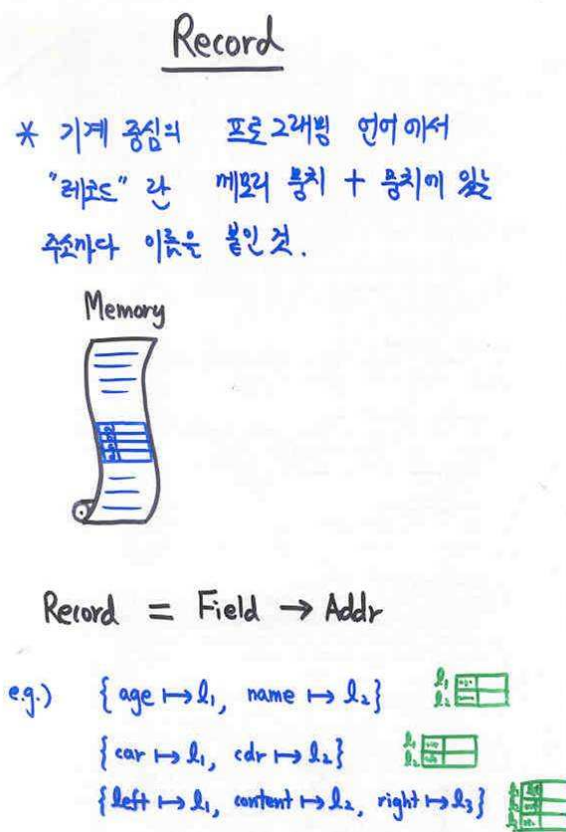 Record
* 기계 중심의 프로그래밍 언어에서
"레코드" 란 메모리 뭉치 + 뭉치에 있는
주소마다 이름을 붙인 것.
Memory
Record = Field → Addr
e.g.) { age ↦ l₁, name ↦ l₂ } l₁ l₂
{ car ↦ l₁, cdr ↦ l₂ } l₁ l₂
{ left ↦ l₁, content ↦ l₂, right ↦ l₃ }